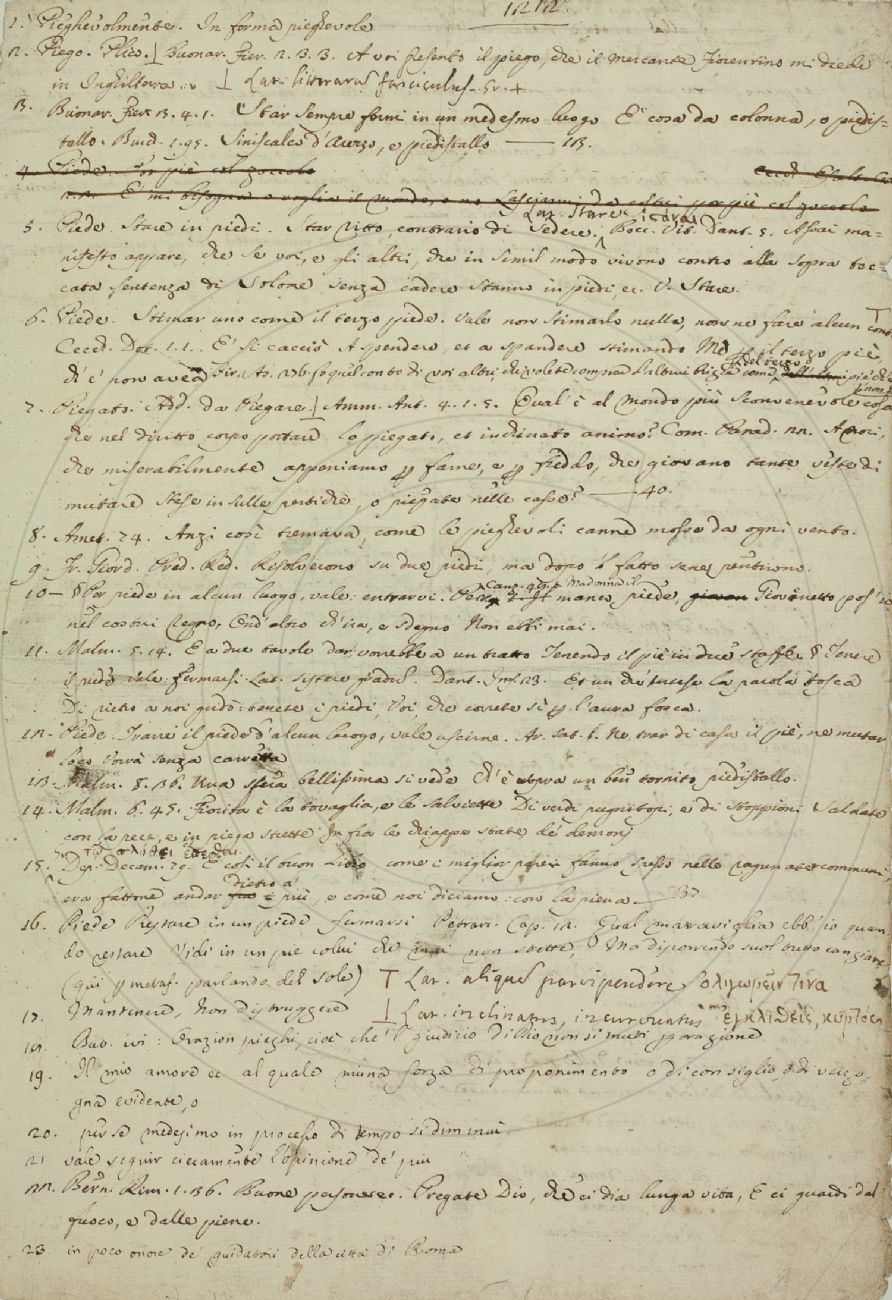 1212
1. Pieghevolmente. In forma pieghevole
2. Piego. Plico. ⊥ Buonar. Fier. 2. 3. 3. A voi presento il piego, che il mercante Fiorentino mi diede
in Inghilterra. ⊥ Lat. litterarum fasciculus. Gr. +
3. Buonar. Fier. 3. 4. 1. Star sempre fermi in un medesmo luogo E' cosa da colonna, o piedis-
tallo. Burch. 1. 95. Siniscalco d'Acerzo, e piedistallo — 113.
4. Piede. Por piè col zoccolo
E mi bisogna o voglia il mondo, o no Lasciarmi da costui por piè col zoccolo
Lat. Stare
5. Piede. Stare in piedi. Star ritto, contrario di Sedere. Bocc. Vit. Dant. 5. Assai ma-
nifesto appare, che se voi, e gli altri, che in simil modo vivono contro alla sopra toc-
cata sentenza di Solone senza cadere stanno in piedi, ec. V. Stare.
6. Piede. Stimar uno come il terzo piede. Vale non stimarlo nulla, non ne fare alcun conto
Cecch. Dot. 1. 1. E si cacciò A spendere, et a spandere stimando Me p il terzo piè,
ch'e' non avea
7. Piegato. Add. da Piegare. ⊥ Amm. Ant. 4. 1. 5. Qual è al mondo più sconvenevole cosa
che nel diritto corpo portare lo piegato, et inchinato animo? Com. Parad. 22. A poveri,
che miserabilmente apponiamo p fame, e p freddo, che giovano tante veste di
mutare stese in sulle pertiche, o piegate nelle casse? — 40.
8. Amet. 74. Anzi così tremava, come le pieghevoli canne mosse da ogni vento.
9. Fr. Giord. Pred. Red. Risolverono su due piedi, ma dopo 'l fatto sene pentirono.
10 — § Por piede in alcun luogo, vale: entrarvi. Petr. Canz. Il manco piede, Giovinetto pos' io
nel costui regno, Ond' altro ch'ira, e sdegno Non ebbi mai.
11. Malm. 5. 14. E a due tavole dar vorrebbe a un tratto Tenendo il piè in due staffe § Tenere
il piede vale: fermarsi. Lat. sistere gradum. Dant. Inf. 23. Et un che 'ntese la parola tosca
Di rietro a noi gridò: tenete i piedi, Voi, che correte sì p l'aura fosca.
12. Piede. Trarre il piede d'alcun luogo, vale uscirne. Ar. Sat. 1. Nè trar di casa il piè, nè mutar
loco Vorrà senza carretta
13. Malm. 8. 36. Una statua bellissima si vede Ch'è sopra un ben tornito piedistallo.
14. Malm. 6. 45. Fiorita è la tovaglia, e le salviette Di verdi pugnitopi, e di stoppioni Saldate
con la pece, e in piega strette In fra le chiappe state de' demonj
15. Dep. Decam. 79. E così il buon Livio come i miglior pareri fanno spesso nelle ragunate communi,
era fattone andar dietro a' più, e come noi diciamo: con la piena — 137
16. Piede Restare in un piede fermarsi Petrarc. Cap. 12. Qual maraviglia ebb' io quan-
do restare Vidi in un piè colui che mai non stette, Ma discorrendo suol tutto cangiare
(qui p metaf. parlando del Sole) T Lat. aliquem parvipendere ὀλιγωρεῖν τινα
17. Mantenere, Non distruggere ⊥ Lat. inclinatus, incurvatus ἐγκλιθείς,
18. But. ivi: Orazion pieghi, cioè che 'l giudicio di Dio non si muti p orazione
19. Il mio amore ec al quale niuna forza di proponimento o di consiglio, o di vergo-
gna evidente, o
20. per se medesimo in processo di tempo si diminuì
21 vale seguir ciecamente l'opinione de' più
22. Bern. Rim. 1. 36. Buone persone ec. Pregate Dio, che ci dia lunga vita, E ci guardi dal
fuoco, e dalle piene.
23. in poco onore de' guidatori della città di Roma